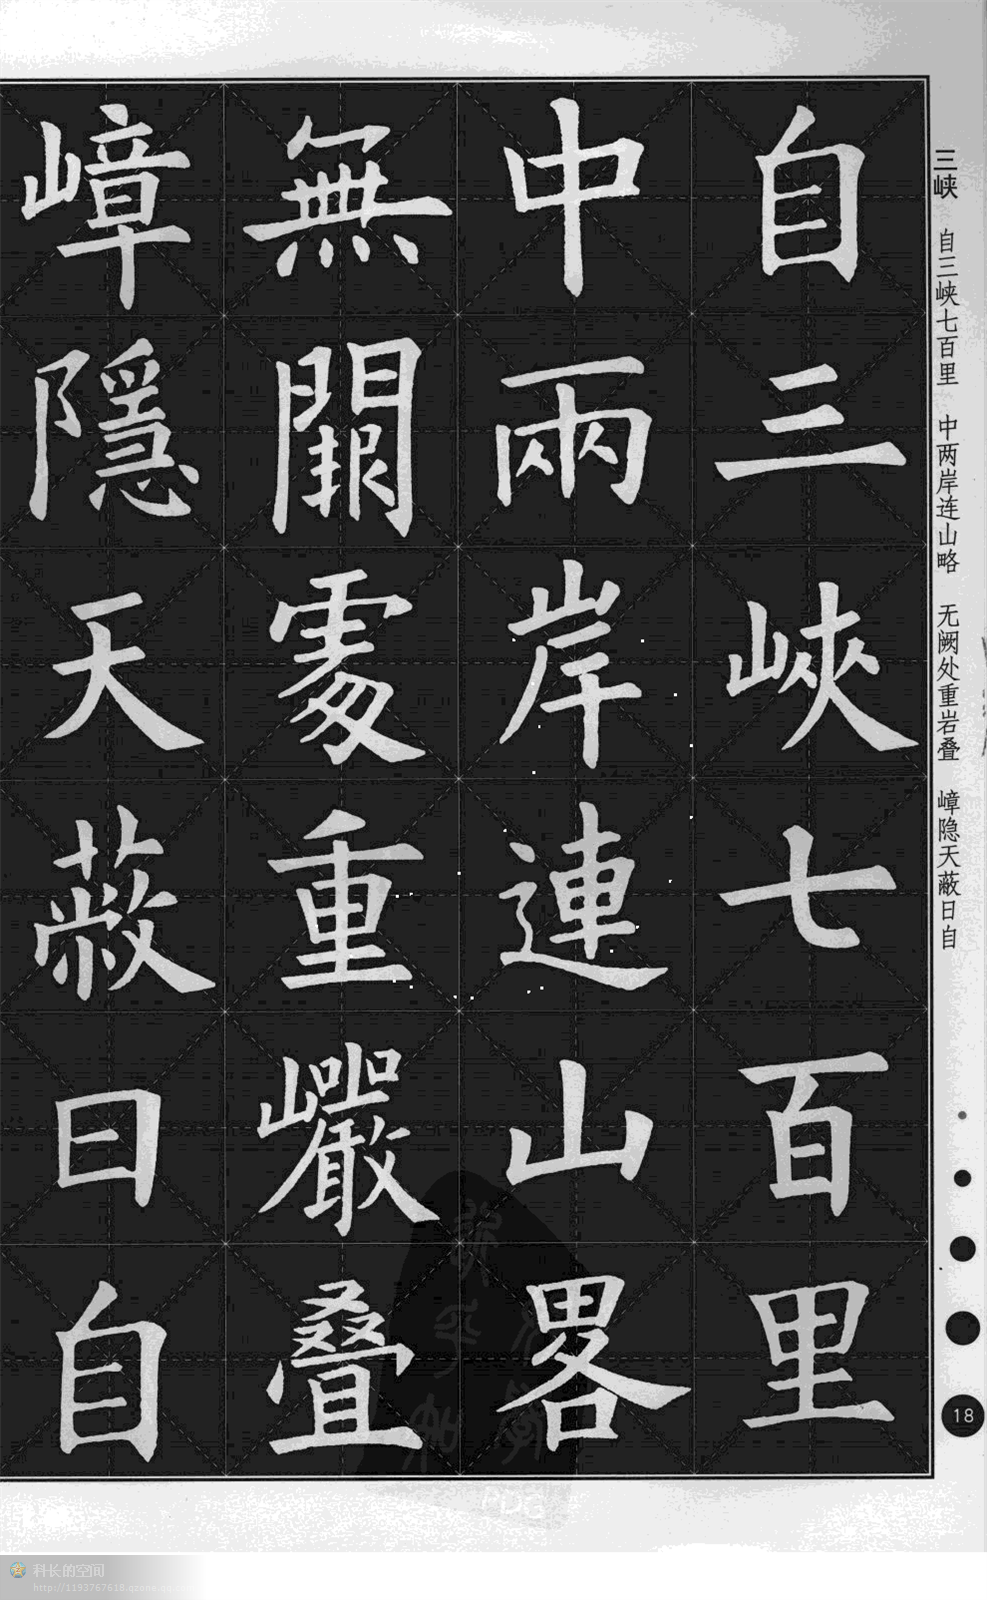 三峡 自三峡七百里 中两岸连山略 无阙处重岩叠 嶂隐天蔽日自
自三峽七百里
中兩岸連山畧
無闕處重巖疊
嶂隱天蔽日自
18
PDG
科长的空间
http://1193767618.qzone.qq.com